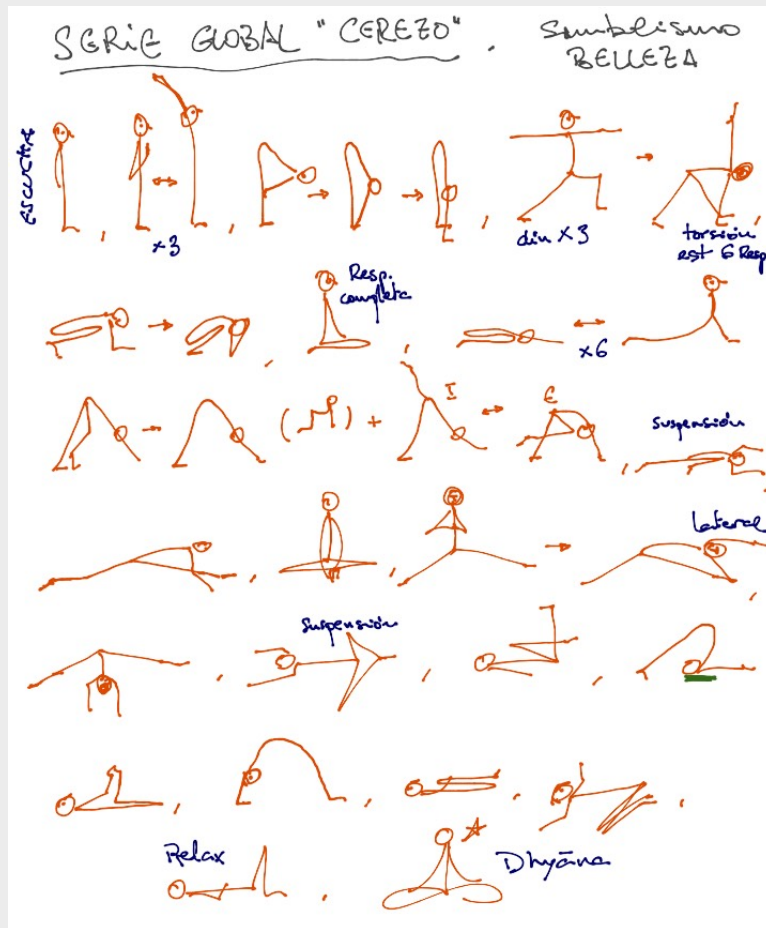 SERIE GLOBAL "CEREZO". Simbolismo
BELLEZA
ESCUCHA
x3
din x3
torsión
est 6 Resp
Resp.
completa
x6
( ) +
I
E
suspensión
lateral
suspensión
Relax
Dhyāna